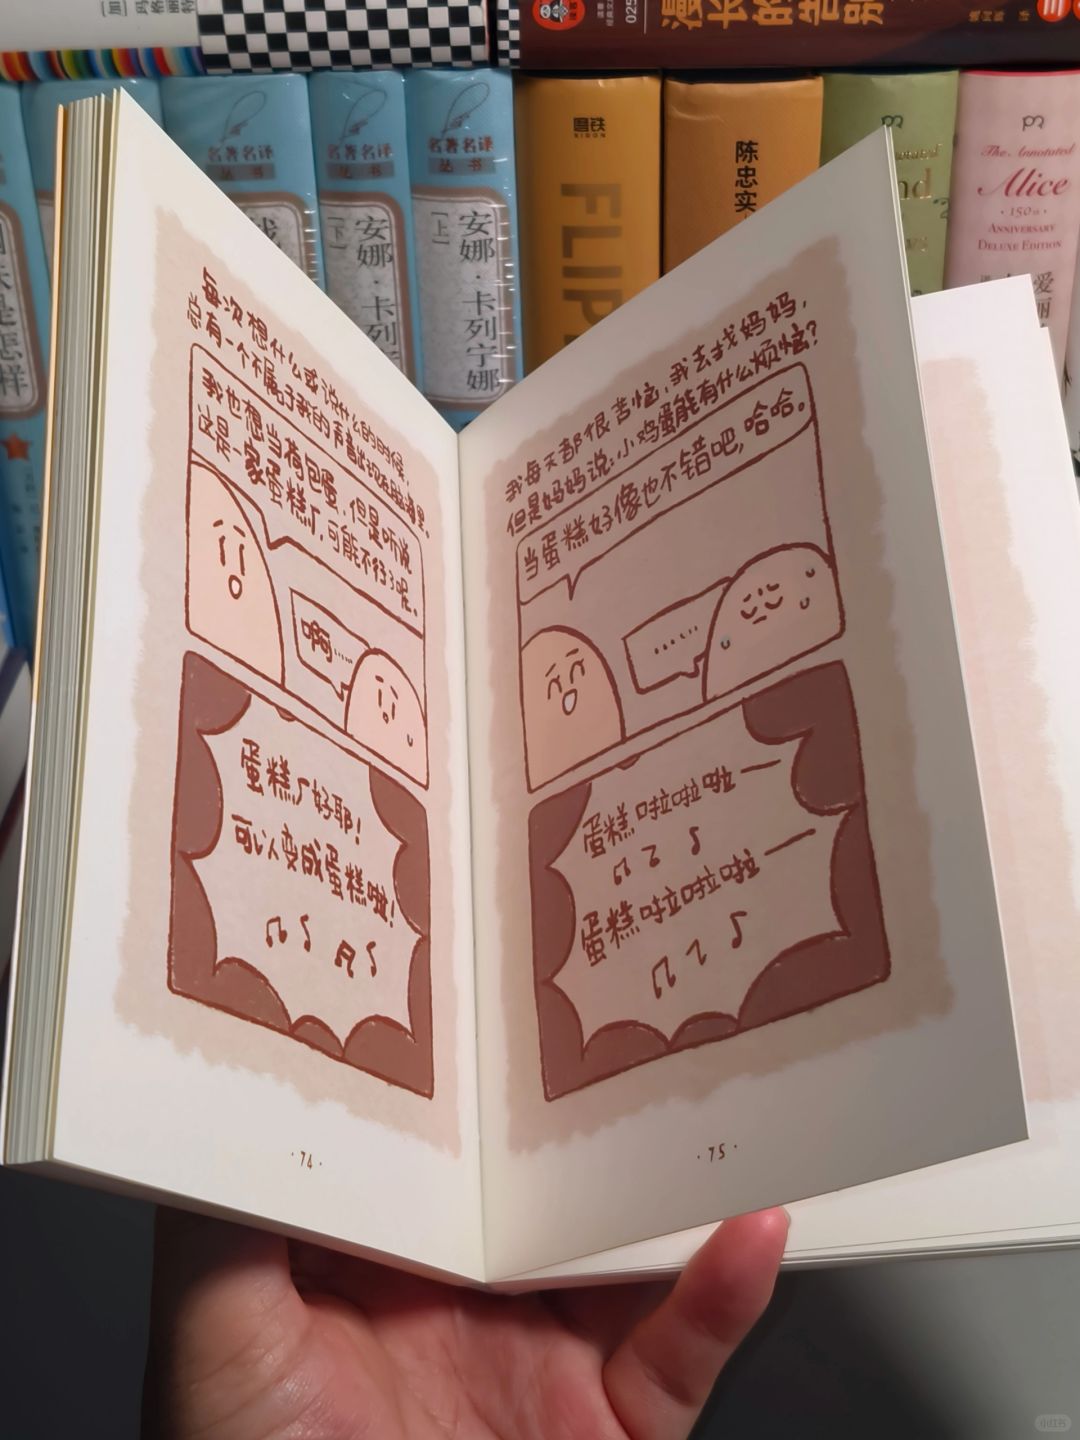 加
玛格丽特
漫长的告别
025
译
名著名译
丛书
名著名译
丛书
安娜·卡列
[下]
名著名译
丛书
安娜·卡列宁娜
[上]
是怎样
磨铁
XIRON
FLIP
陈忠实
The Annotated
Alice
·150th·
ANNIVERSARY
DELUXE EDITION
爱丽
每次想什么或说什么的时候，
总有一个不属于我的声音出现在脑海里。
我也想当荷包蛋，但是听说
这是一家蛋糕厂，可能不行了呢。
啊……
蛋糕厂好耶！
可以变成蛋糕啦！
·74·
我每天都很苦恼，我去找妈妈，
但是妈妈说：小鸡蛋能有什么烦恼？
当蛋糕好像也不错吧，哈哈。
……
蛋糕啦啦啦——
蛋糕啦啦啦啦——
·75·
小红书